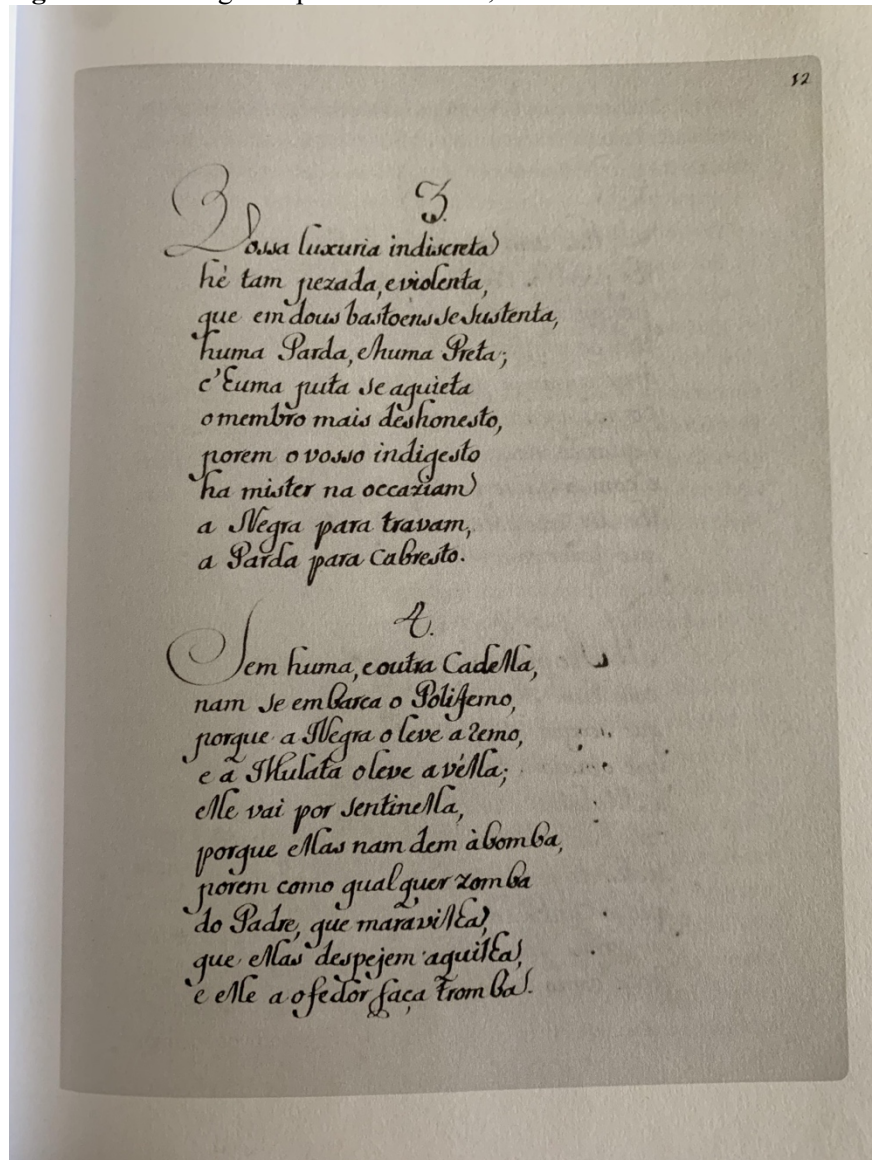 12
3.
Vossa luxuria indiscreta
hé tam pezada, e violenta,
que em dous bastoens se sustenta,
huma Parda, e huma Preta;
c'huma puta se aquieta
o membro mais deshonesto,
porem o vosso indigesto
ha mister na occaziam
a Negra para travam,
a Parda para Cabresto.
4.
Sem huma, e outra Cadella,
nam se embarca o Polifemo,
porque a Negra o leve a remo,
e a Mulata o leve a vélla;
elle vai por sentinella,
porque ellas nam dem à bomba,
porem como qualquer zomba
do Padre, que maravilha,
que ellas despejem a quilha,
e elle ao fedor faça tromba.